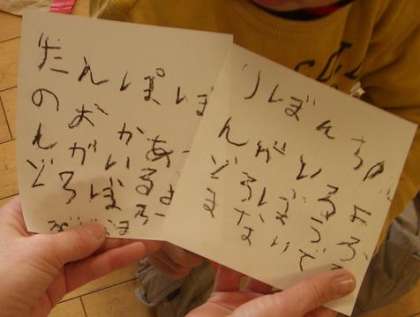 たんぽぽ
のおかあ
んがいるよ
どろぼう
りぼんちゃ
んがいるよ
どろぼうふ
まないで